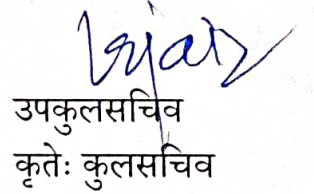 उपकुलसचिव
कृतेः कुलसचिव